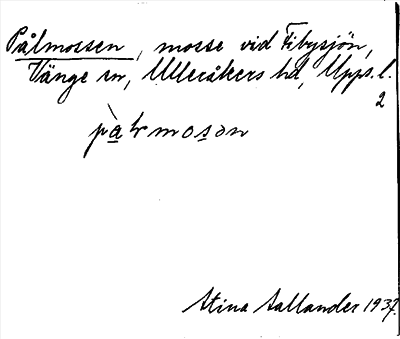 Pålmossen, mosse vid Fibysjön,
Vänge sn, Ulleråkers hd, Upps. l.
2
pàlmosən
Stina Sallander 1937.